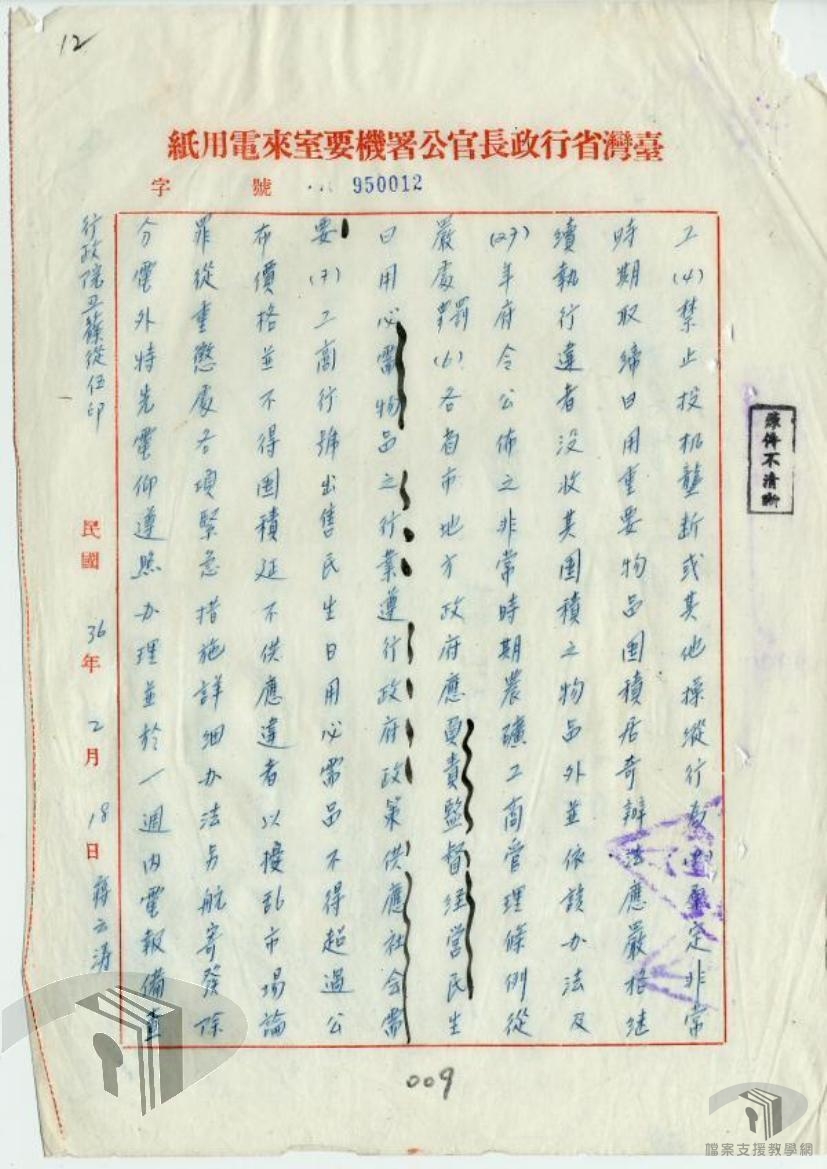 12
臺灣省行政長官公署機要室來電用紙
字 號 950012
工(4)禁止投机壟断或其他操縱行為 非常
時期取締日用重要物品囤積居奇辦法應嚴格继
續執行違者没收其囤積之物品外並依該办法及
(27)年府令公佈之非常時期農礦工商管理條例從
嚴處罪罰(6)各省市地方政府應負責監督经营民生
日用必需物品之行業遵行政府政策供應社会需
要(7)工商行號出售民生日用必需品不得超過公
布價格並不得囤積延不供應違者以擾乱市場論
罪從重懲處各項緊急措施詳细办法另航寄發除
分電外特先電仰遵照办理並於一週内電報備查
行政院丑篠從伍印
民國 36年 2月 18日 蔣
原件不清晰
009
檔案支援教學網